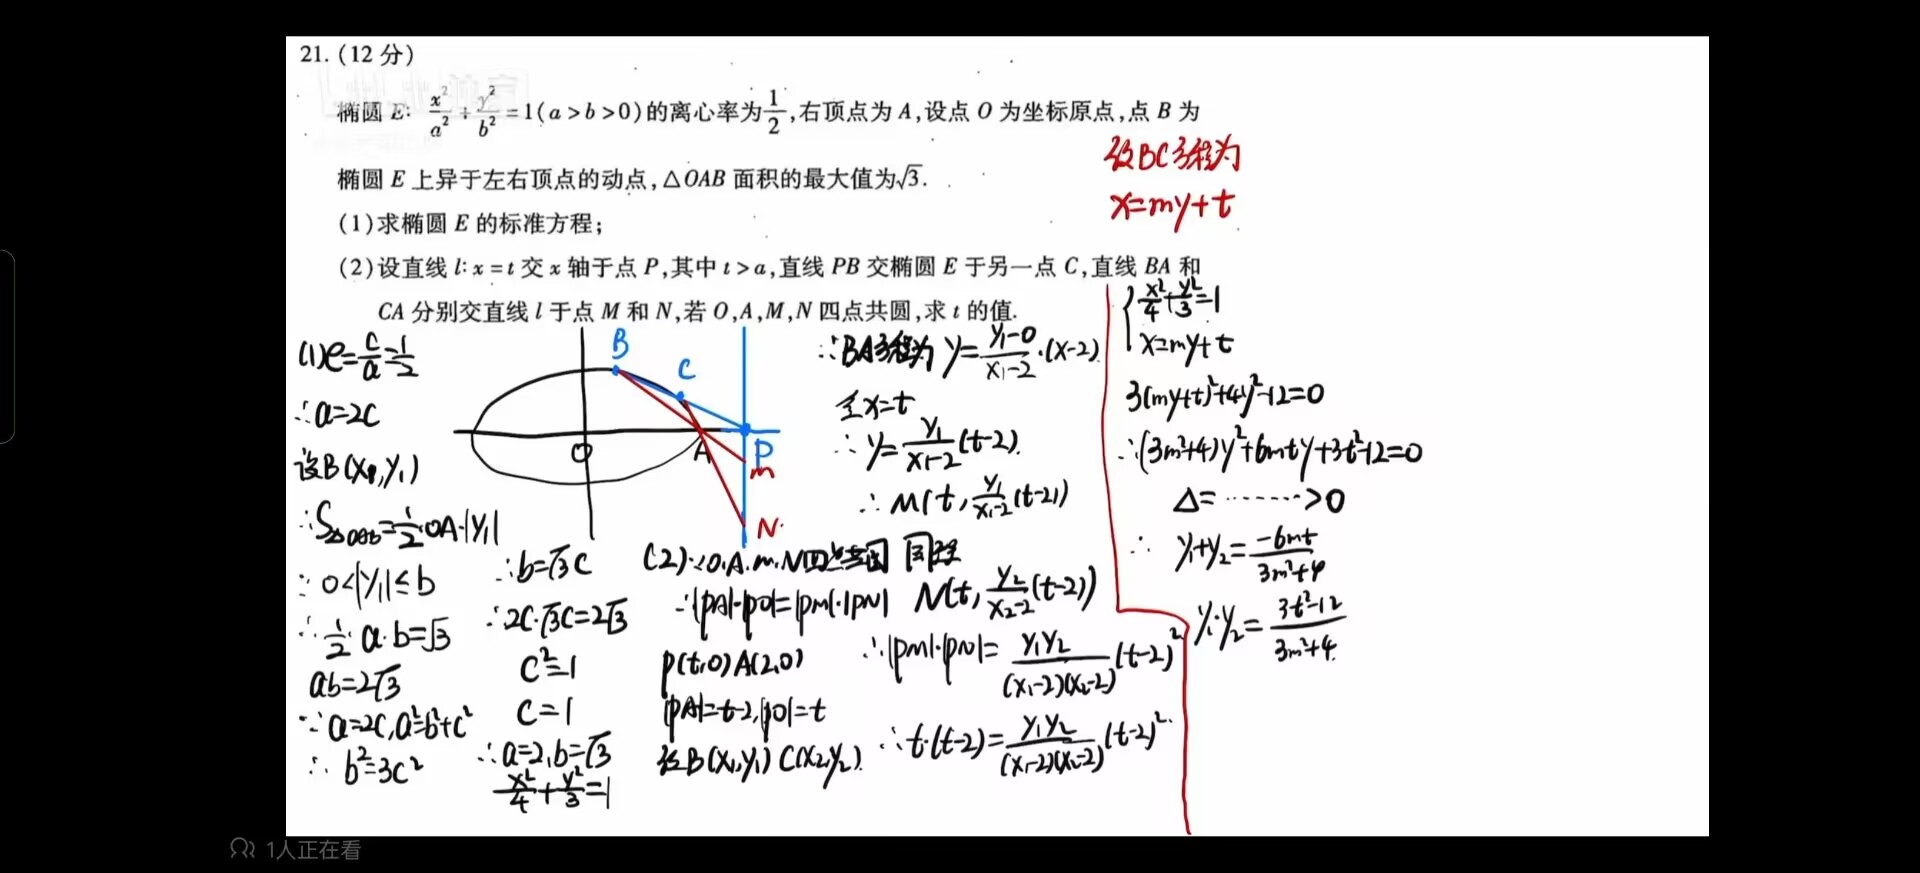 21.(12分)
椭圆 E: x²/a² + y²/b² = 1(a>b>0)的离心率为1/2,右顶点为 A,设点 O 为坐标原点,点 B 为
椭圆 E 上异于左右顶点的动点,△OAB 面积的最大值为√3.
(1)求椭圆 E 的标准方程;
(2)设直线 l: x=t 交 x 轴于点 P,其中 t>a,直线 PB 交椭圆 E 于另一点 C,直线 BA 和
CA 分别交直线 l 于点 M 和 N,若 O,A,M,N 四点共圆,求 t 的值.
(1) e=c/a=1/2
∴a=2c
设B(x₁,y₁)
∴S△OAB=1/2·OA·|y₁|
∵0<|y₁|≤b
∴1/2·a·b=√3
ab=2√3
∵a=2c,a²=b²+c²
∴b²=3c²
∴b=√3c
∴2c·√3c=2√3
c²=1
c=1
∴a=2,b=√3
x²/4+y²/3=1
B
C
O
A
P
m
N
(2)∵O.A.m.N四点共圆
∴|PA|·|PO|=|PM|·|PN|
P(t,0) A(2,0)
|PA|=t-2,|PO|=t
设B(x₁,y₁) C(x₂,y₂)
∵BA方程为 y=(y₁-0)/(x₁-2)·(x-2)
令x=t
∴y=y₁/(x₁-2)(t-2)
∴M(t, y₁/(x₁-2)(t-2))
同理
N(t, y₂/(x₂-2)(t-2))
∴|PM|·|PN|=y₁y₂/(x₁-2)(x₂-2)(t-2)²
∴t·(t-2)=y₁y₂/(x₁-2)(x₂-2)(t-2)²
设BC方程为
x=my+t
{x²/4+y²/3=1
x=my+t
3(my+t)²+4y²-12=0
∴(3m²+4)y²+6mty+3t²-12=0
Δ=……>0
∴y₁+y₂=-6mt/3m²+4
y₁·y₂=3t²-12/3m²+4
1人正在看